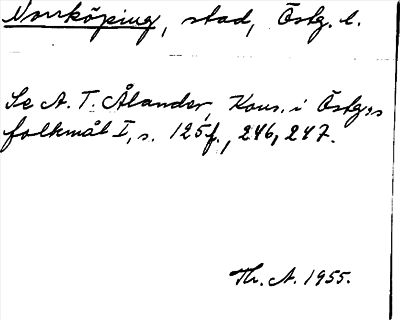 Norrköping, stad, Östg. l.
Se A. T. Ålander, Kons. i Östg:s
folkmål I, s. 125f., 246, 247.
Th. A. 1955.